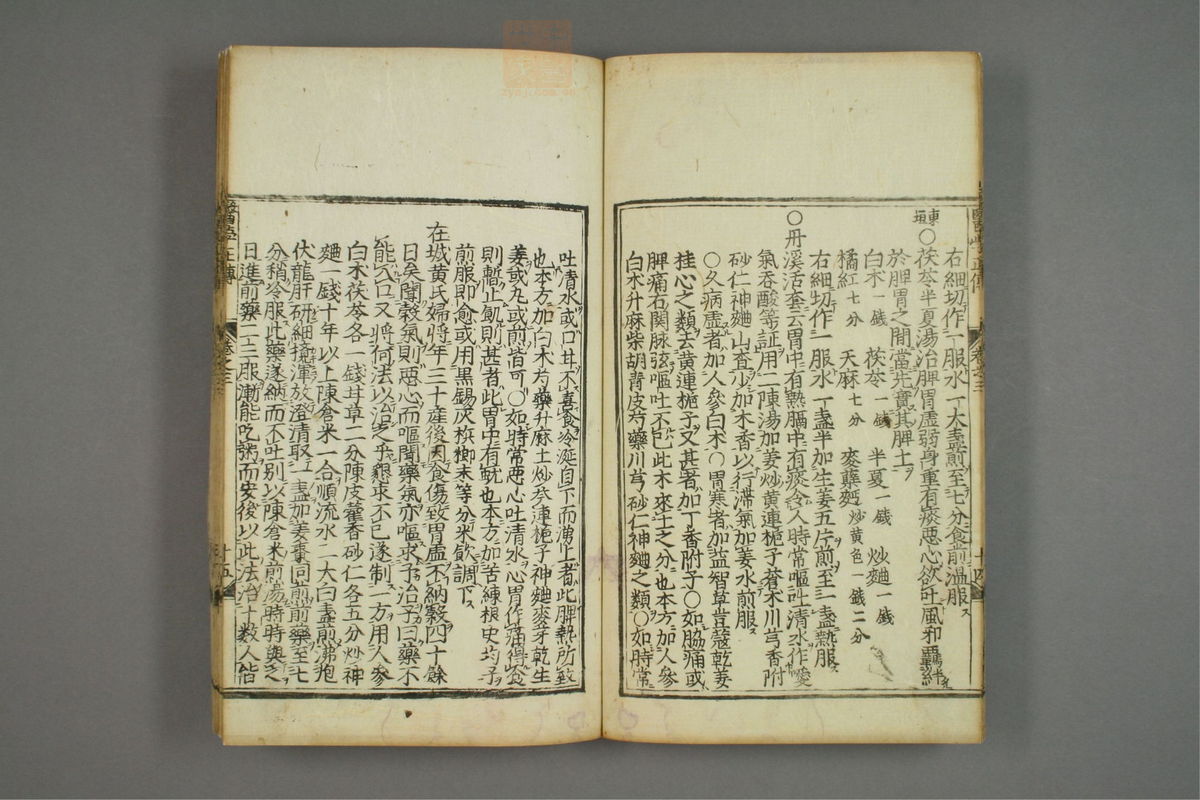 右細切作一服水一大盞煎至七分食前溫服
東垣○茯苓半夏湯治脾胃虛弱身重有痰惡心欲吐風邪羈絆
於脾胃之間當先實其脾土
白朮一錢 茯苓一錢 半夏一錢 炒麯一錢
橘紅七分 天麻七分 麥蘖麪炒黄色一錢二分
右細切作一服水一盞半加生姜五片煎至一盞熱服
○丹溪活套云胃中有熱膈中有痰令人時常嘔吐清水作噯
氣吞酸等証用二陳湯加姜炒黄連梔子蒼朮川芎香附
砂仁神麯山查少加木香以行滯氣加姜水煎服
○久病虛者加人參白朮○胃寒者加益智草荳蔻乾姜
桂心之類去黄連梔子又甚者加丁香附子○如脇痛或
脾痛右関脉弦嘔吐不已此木來土之分也本方加人參
白朮升麻柴胡青皮芍藥川芎砂仁神麯之類○如時常
吐清水或口甘不喜食冷涎自下而湧上者此脾熱所致
也本方加白朮芍藥升麻土炒芩連梔子神麯麥牙乾生
姜或丸或煎皆可○如時常惡心吐清水心胃作痛得食
則暫止飢則甚者此胃中有蚘也本方加苦練根史均子
煎服即愈或用黑錫灰梹榔末等分米飲調下
在城黄氏婦將年三十產後因食傷致胃虛不納穀四十餘
日矣聞穀氣則惡心而嘔聞藥氣亦嘔求予治予曰藥不
能入口又將何法以治之乎懇求不已遂制一方用人參
白朮茯苓各一錢甘草二分陳皮藿香砂仁各五分炒神
麯一錢十年以上陳倉米一合順流水一大白盞煎沸抱
伏龍肝研細攪渾放澄清取一盞加姜棗同煎前藥至七
分稍冷服此藥遂納而不吐別以陳倉米煎湯時時與之
日進前藥二三服漸能吃粥而安後以此法治十數人皆
醫學正傳
卷之三
十四
醫學正傳
卷之三
十五